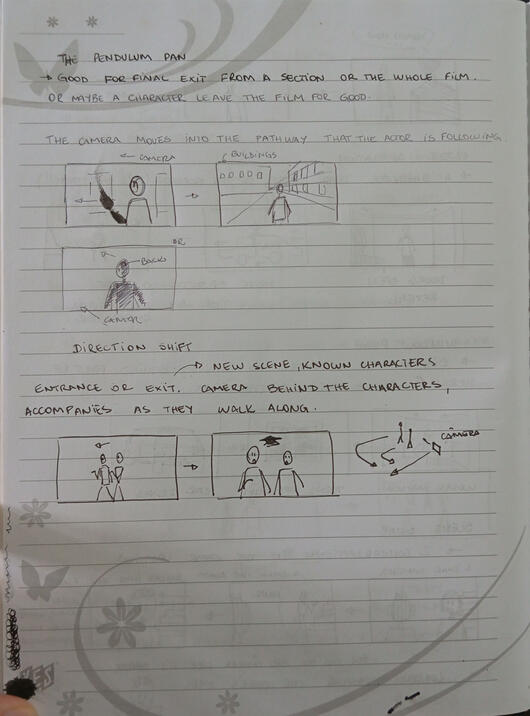 THE PENDULUM PAN
→ GOOD FOR FINAL EXIT FROM A SECTION OR THE WHOLE FILM.
OR MAYBE A CHARACTER LEAVE THE FILM FOR GOOD.
THE CAMERA MOVES INTO THE PATHWAY THAT THE ACTOR IS FOLLOWING.
← CAMERA
BUILDINGS
OR
BACK
DIRECTION SHIFT
→ NEW SCENE, KNOWN CHARACTERS
ENTRANCE OR EXIT. CAMERA BEHIND THE CHARACTERS,
ACCOMPANIES AS THEY WALK ALONG.
CÂMERA